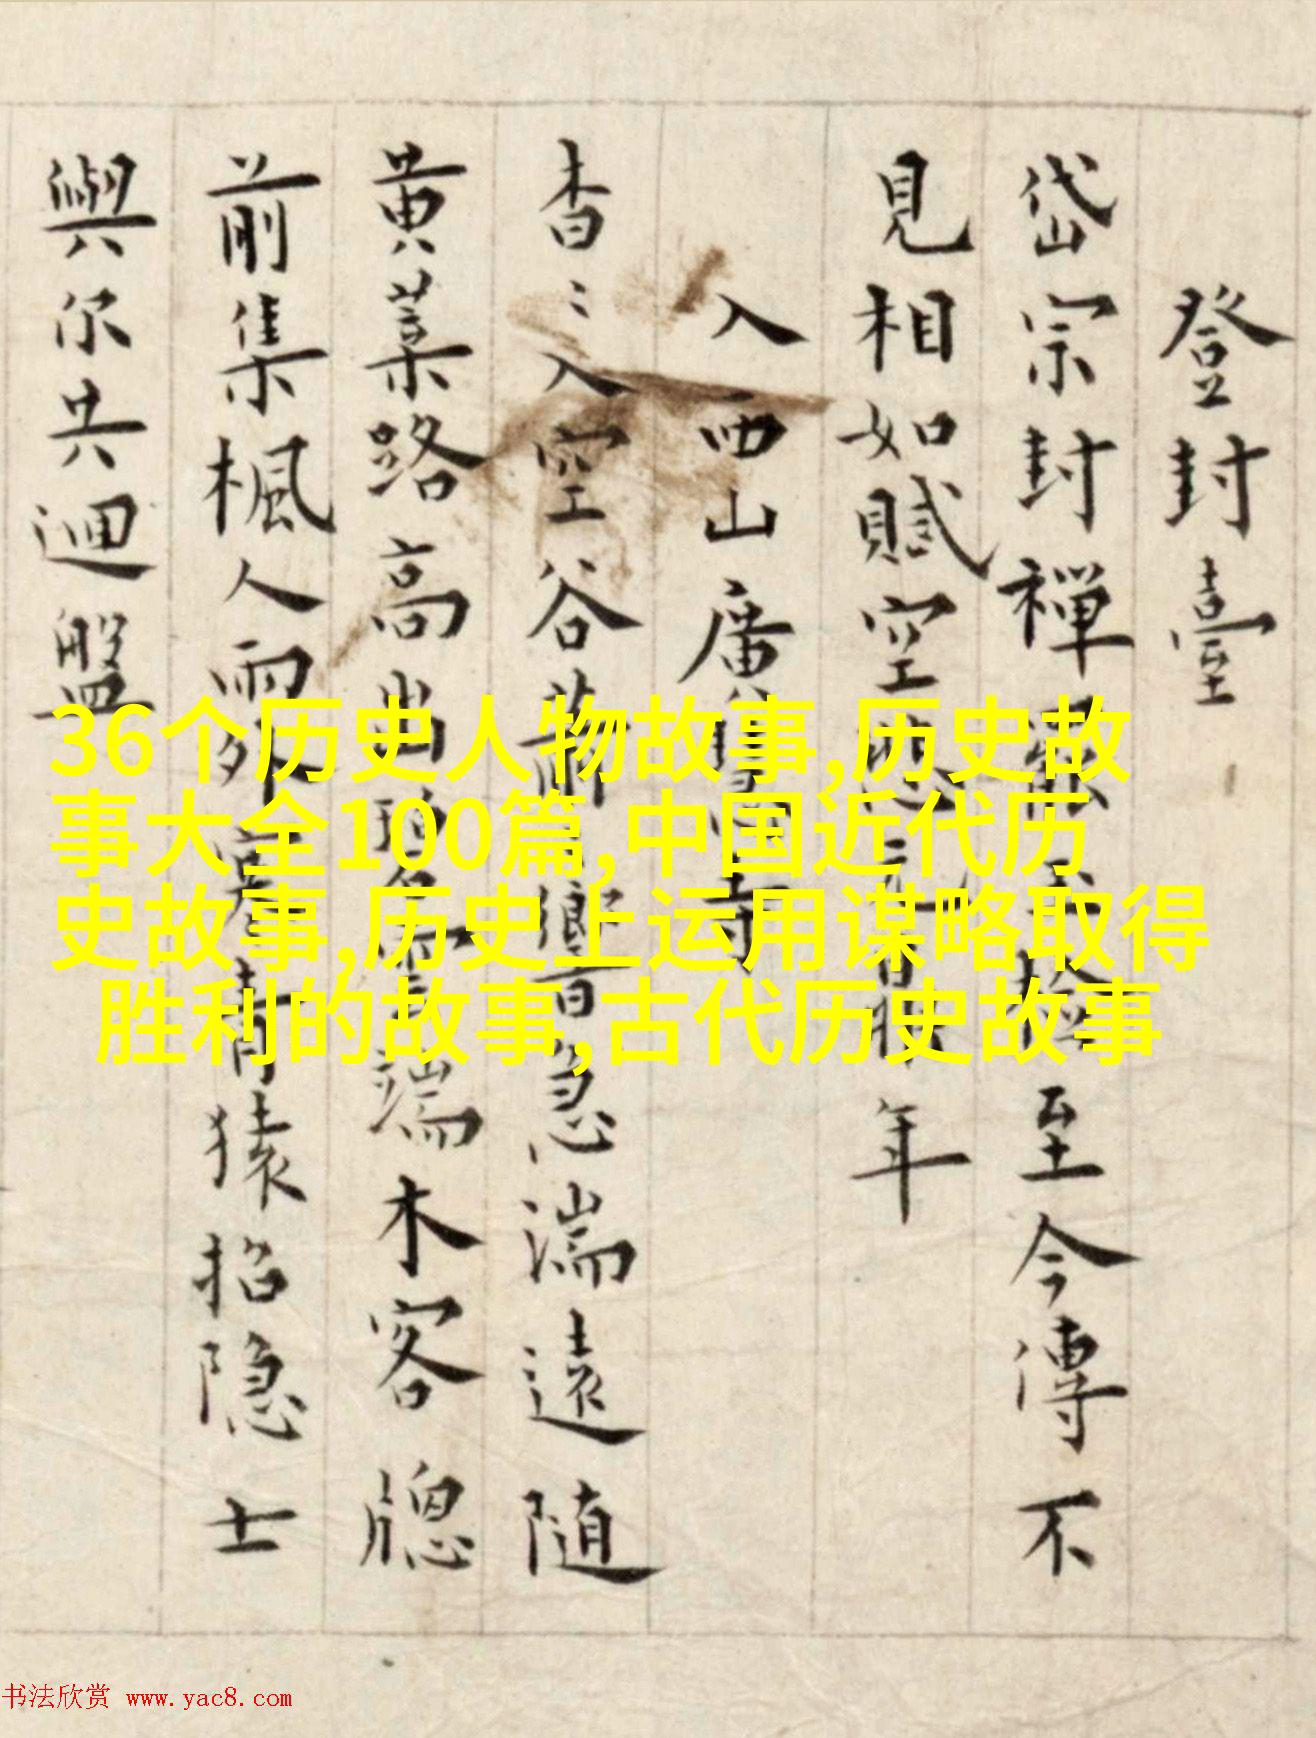 登封臺
岱宗封禪至今傳不
見相如賦空年
入西山廣寺
杳〻入空谷響急湍遠隨
黄葉路高出端木客牕
前集楓人雨外青猿招隱士
與尔共迴盤
36个历史人物故事,历史故
事大全100篇,中国近代历
史故事,历史上运用谋略取得
胜利的故事,古代历史故事
书法欣赏 www.yac8.com